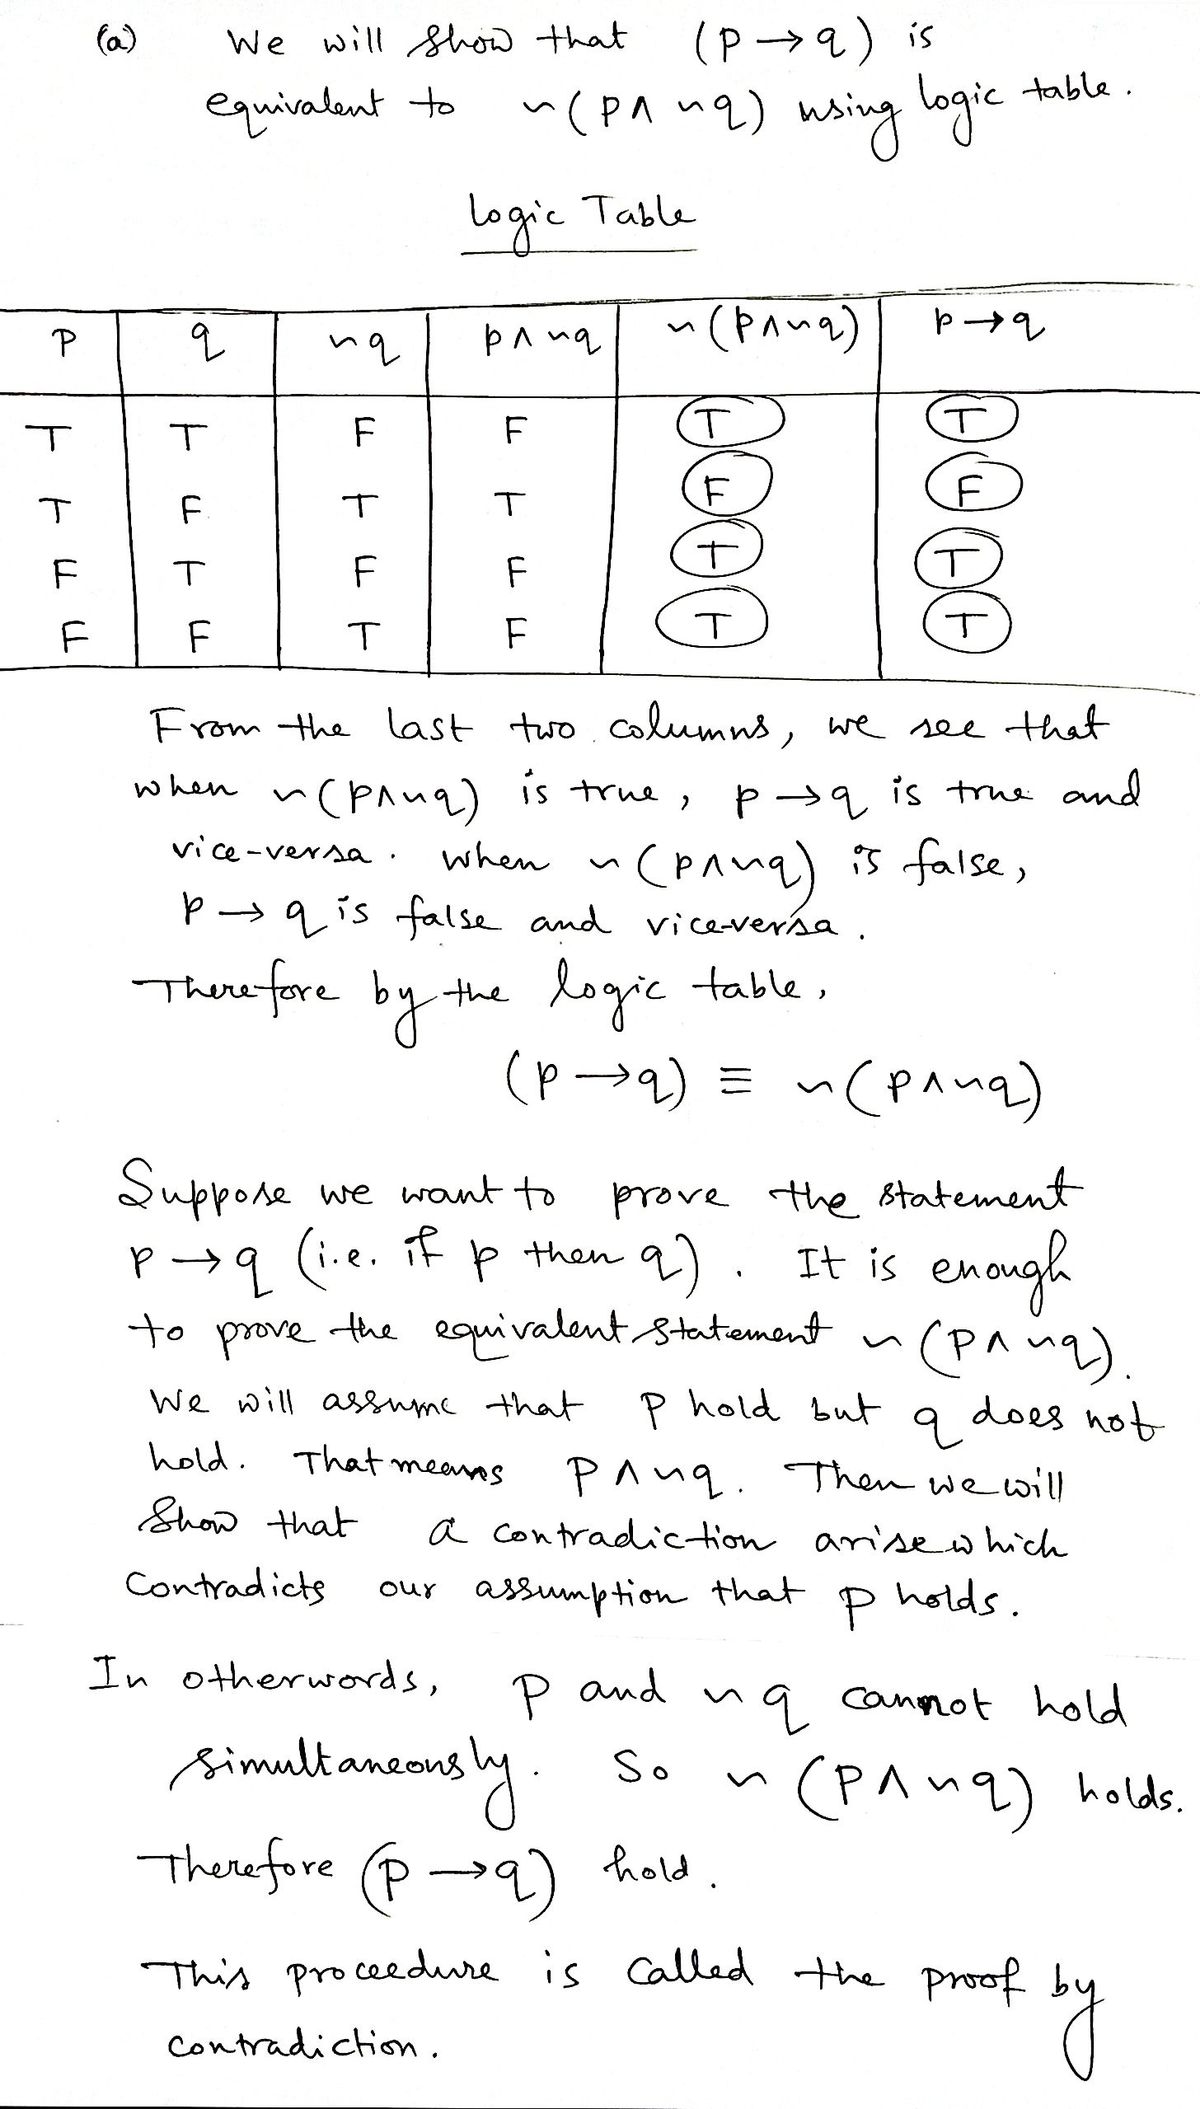 (a) We will show that (p → q) is
equivalent to ~(p ∧ ~q) using logic table.
Logic Table
p q ~q p ∧ ~q ~(p ∧ ~q) p → q
T T F F T T
T F T T F F
F T F F T T
F F T F T T
From the last two columns, we see that
when ~(p∧~q) is true, p → q is true and
vice-versa. when ~(p∧~q) is false,
p → q is false and vice-versa.
Therefore by the logic table,
(p → q) ≡ ~(p∧~q)
Suppose we want to prove the statement
p → q (i.e. if p then q). It is enough
to prove the equivalent statement ~(p ∧ ~q).
We will assume that p hold but q does not
hold. That means p ∧ ~q. Then we will
show that a contradiction arise which
contradicts our assumption that p holds.
In otherwords, p and ~q cannot hold
simultaneously. So ~(p ∧ ~q) holds.
Therefore (p → q) hold.
This proceedure is called the proof by
contradiction.